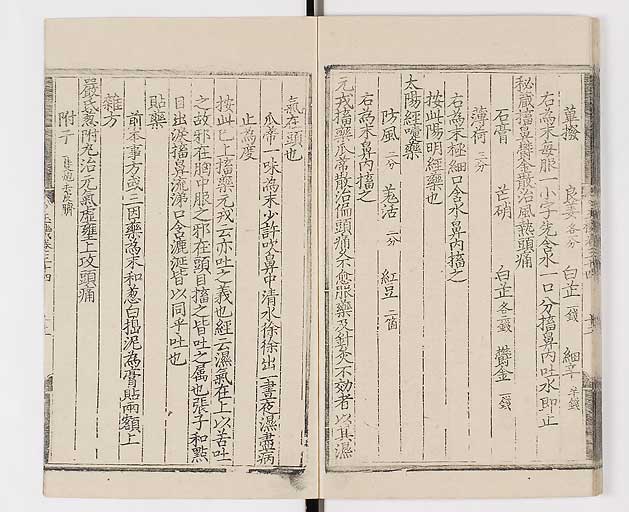 蓽撥 良姜各分 白芷一錢 細辛半錢
右為末每服一小字先含水一口分搐鼻內吐水即止
秘藏搐鼻鬱金散治風熱頭痛
石膏 芒硝 白芷各一錢 鬱金一錢
薄荷二分
右為末極細口含水鼻內搐之
按此陽明經藥也
太陽經嚏藥
防風二分 羌活二分 紅豆二箇
右為末鼻內搐之
元戎搐藥瓜蒂散治偏頭痛久不愈服藥及針灸不効者以其濕
氣在頭也
瓜蒂一味為末少許吹鼻中清水徐徐出一晝夜濕盡病
止為度
按此已上搐藥元戎云亦吐之義也經云濕氣在上以苦吐
之故邪在胸中服之邪在頭目搐之皆吐之属也張子和點
目出淚搐鼻流涕口含漉涎皆以同乎吐也
貼藥
前本事方或三因藥為末和葱白搗泥為膏貼兩額上
雜方
嚴氏葱附丸治元氣虛壅上攻頭痛
附子一隻炮去皮臍